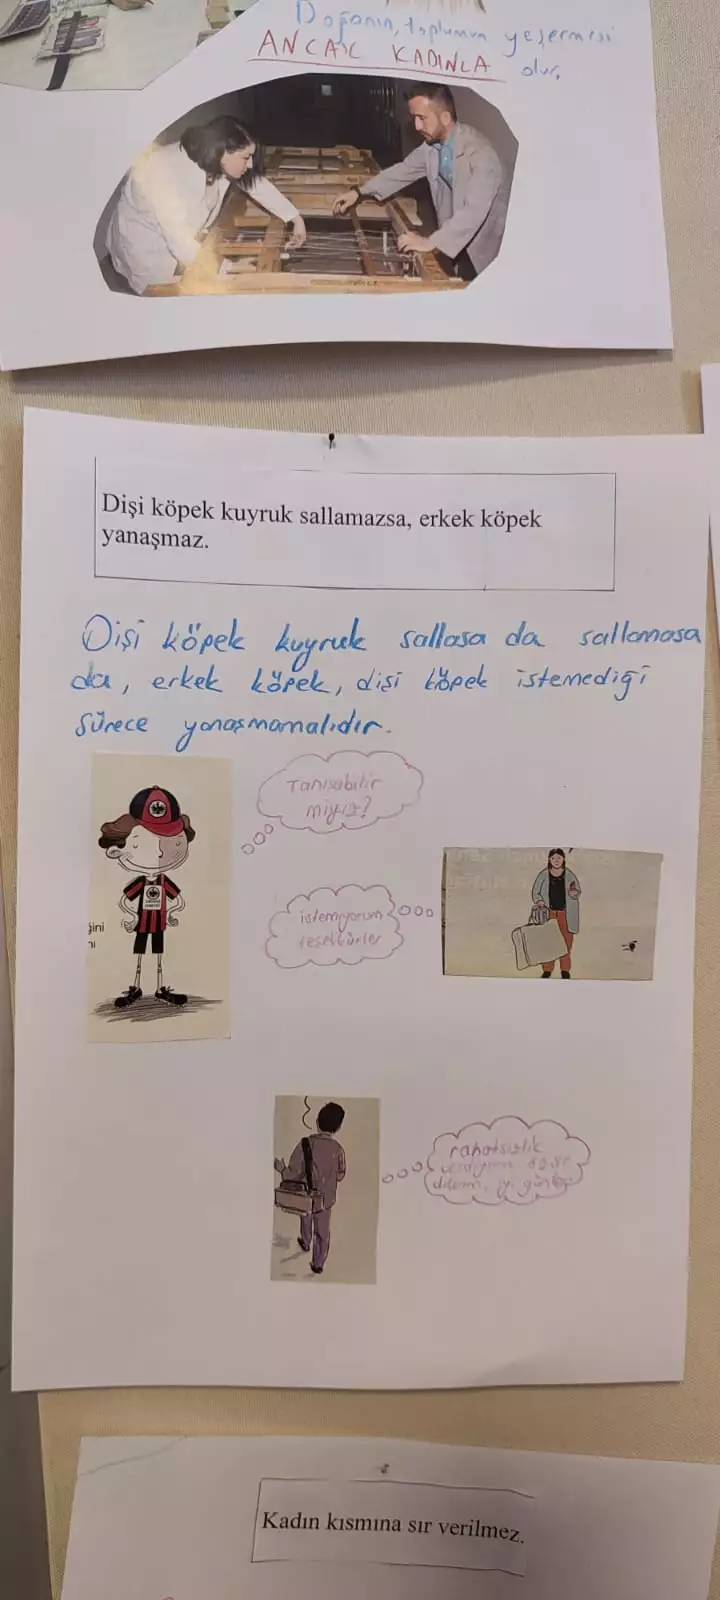 Doğanın, toplumun yeşermesi
ANCAK KADINLA olur.
Dişi köpek kuyruk sallamazsa, erkek köpek
yanaşmaz.
Dişi köpek kuyruk sallasa da sallamasa
da, erkek köpek, dişi köpek istemediği
sürece yanaşmamalıdır.
Tanışabilir
miyiz?
ğini
istemiyorum
teşekkürler
rahatsızlık
verdiğim için özür
dilerim, iyi günler
Kadın kısmına sır verilmez.